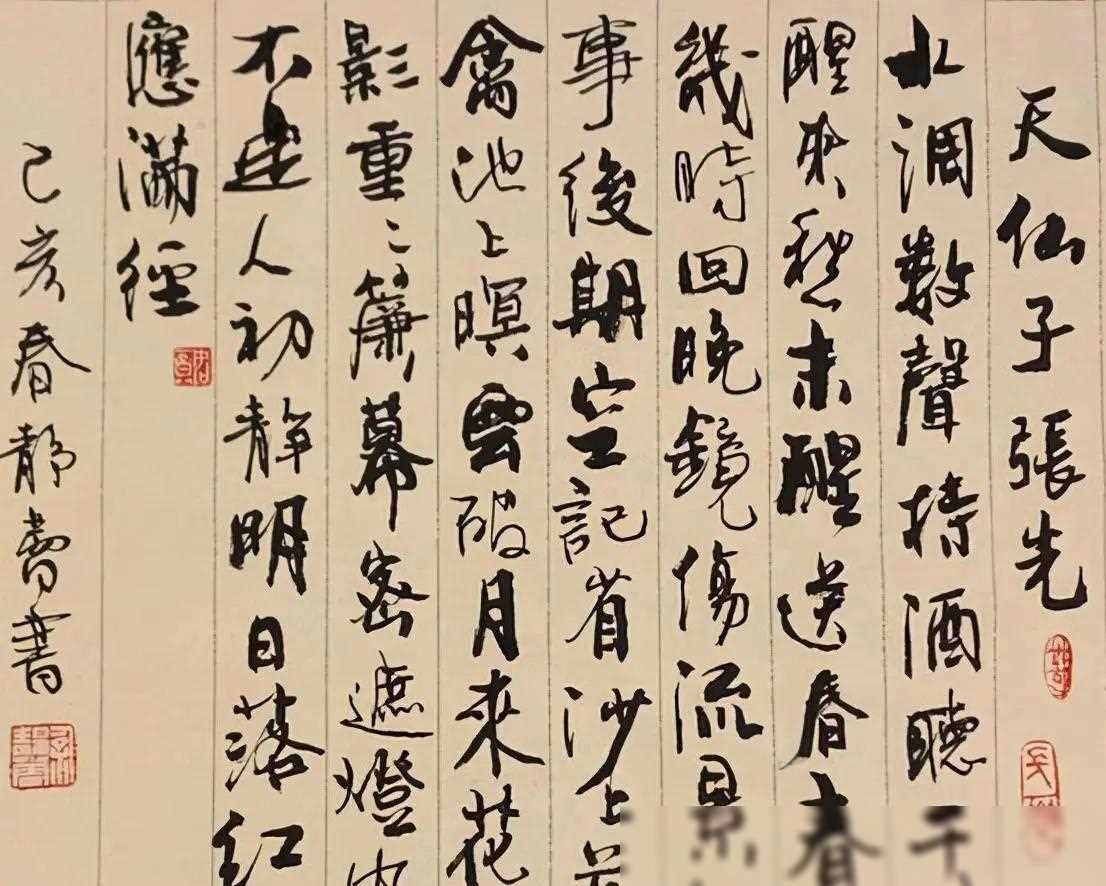 天仙子張先
水調數聲持酒聽
醒來愁未醒送春春
幾時回晚鏡傷流景
事後期空記省沙上
禽池上暝雲破月來花
影重〻簾幕密遮燈
不定人初靜明日落紅
應滿徑
己亥春靜書